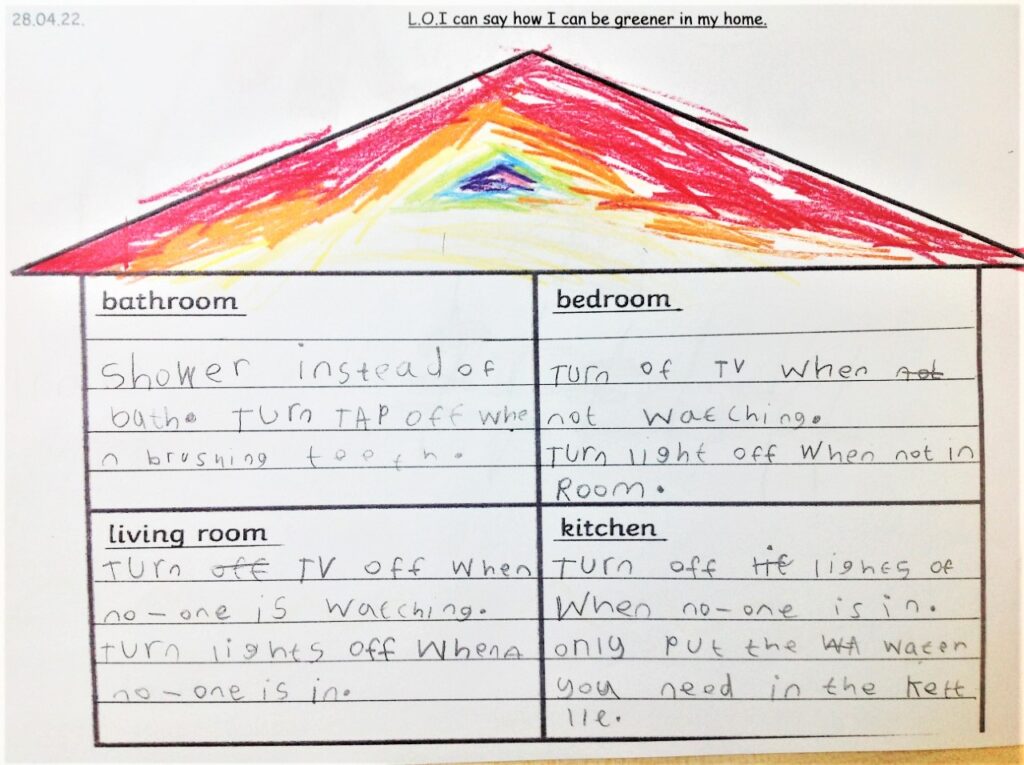 28.04.22.
L.O.I can say how I can be greener in my home.
bathroom
Shower instead of
bath. Turn TAP off whe
n brushing teeth.
bedroom
Turn of TV when not
not watching.
Turn light off when not in
Room.
living room
Turn off TV off when
no-one is watching.
Turn lights off when
no-one is in.
kitchen
Turn off lights of
When no-one is in.
only put the WA water
you need in the kett
lle.